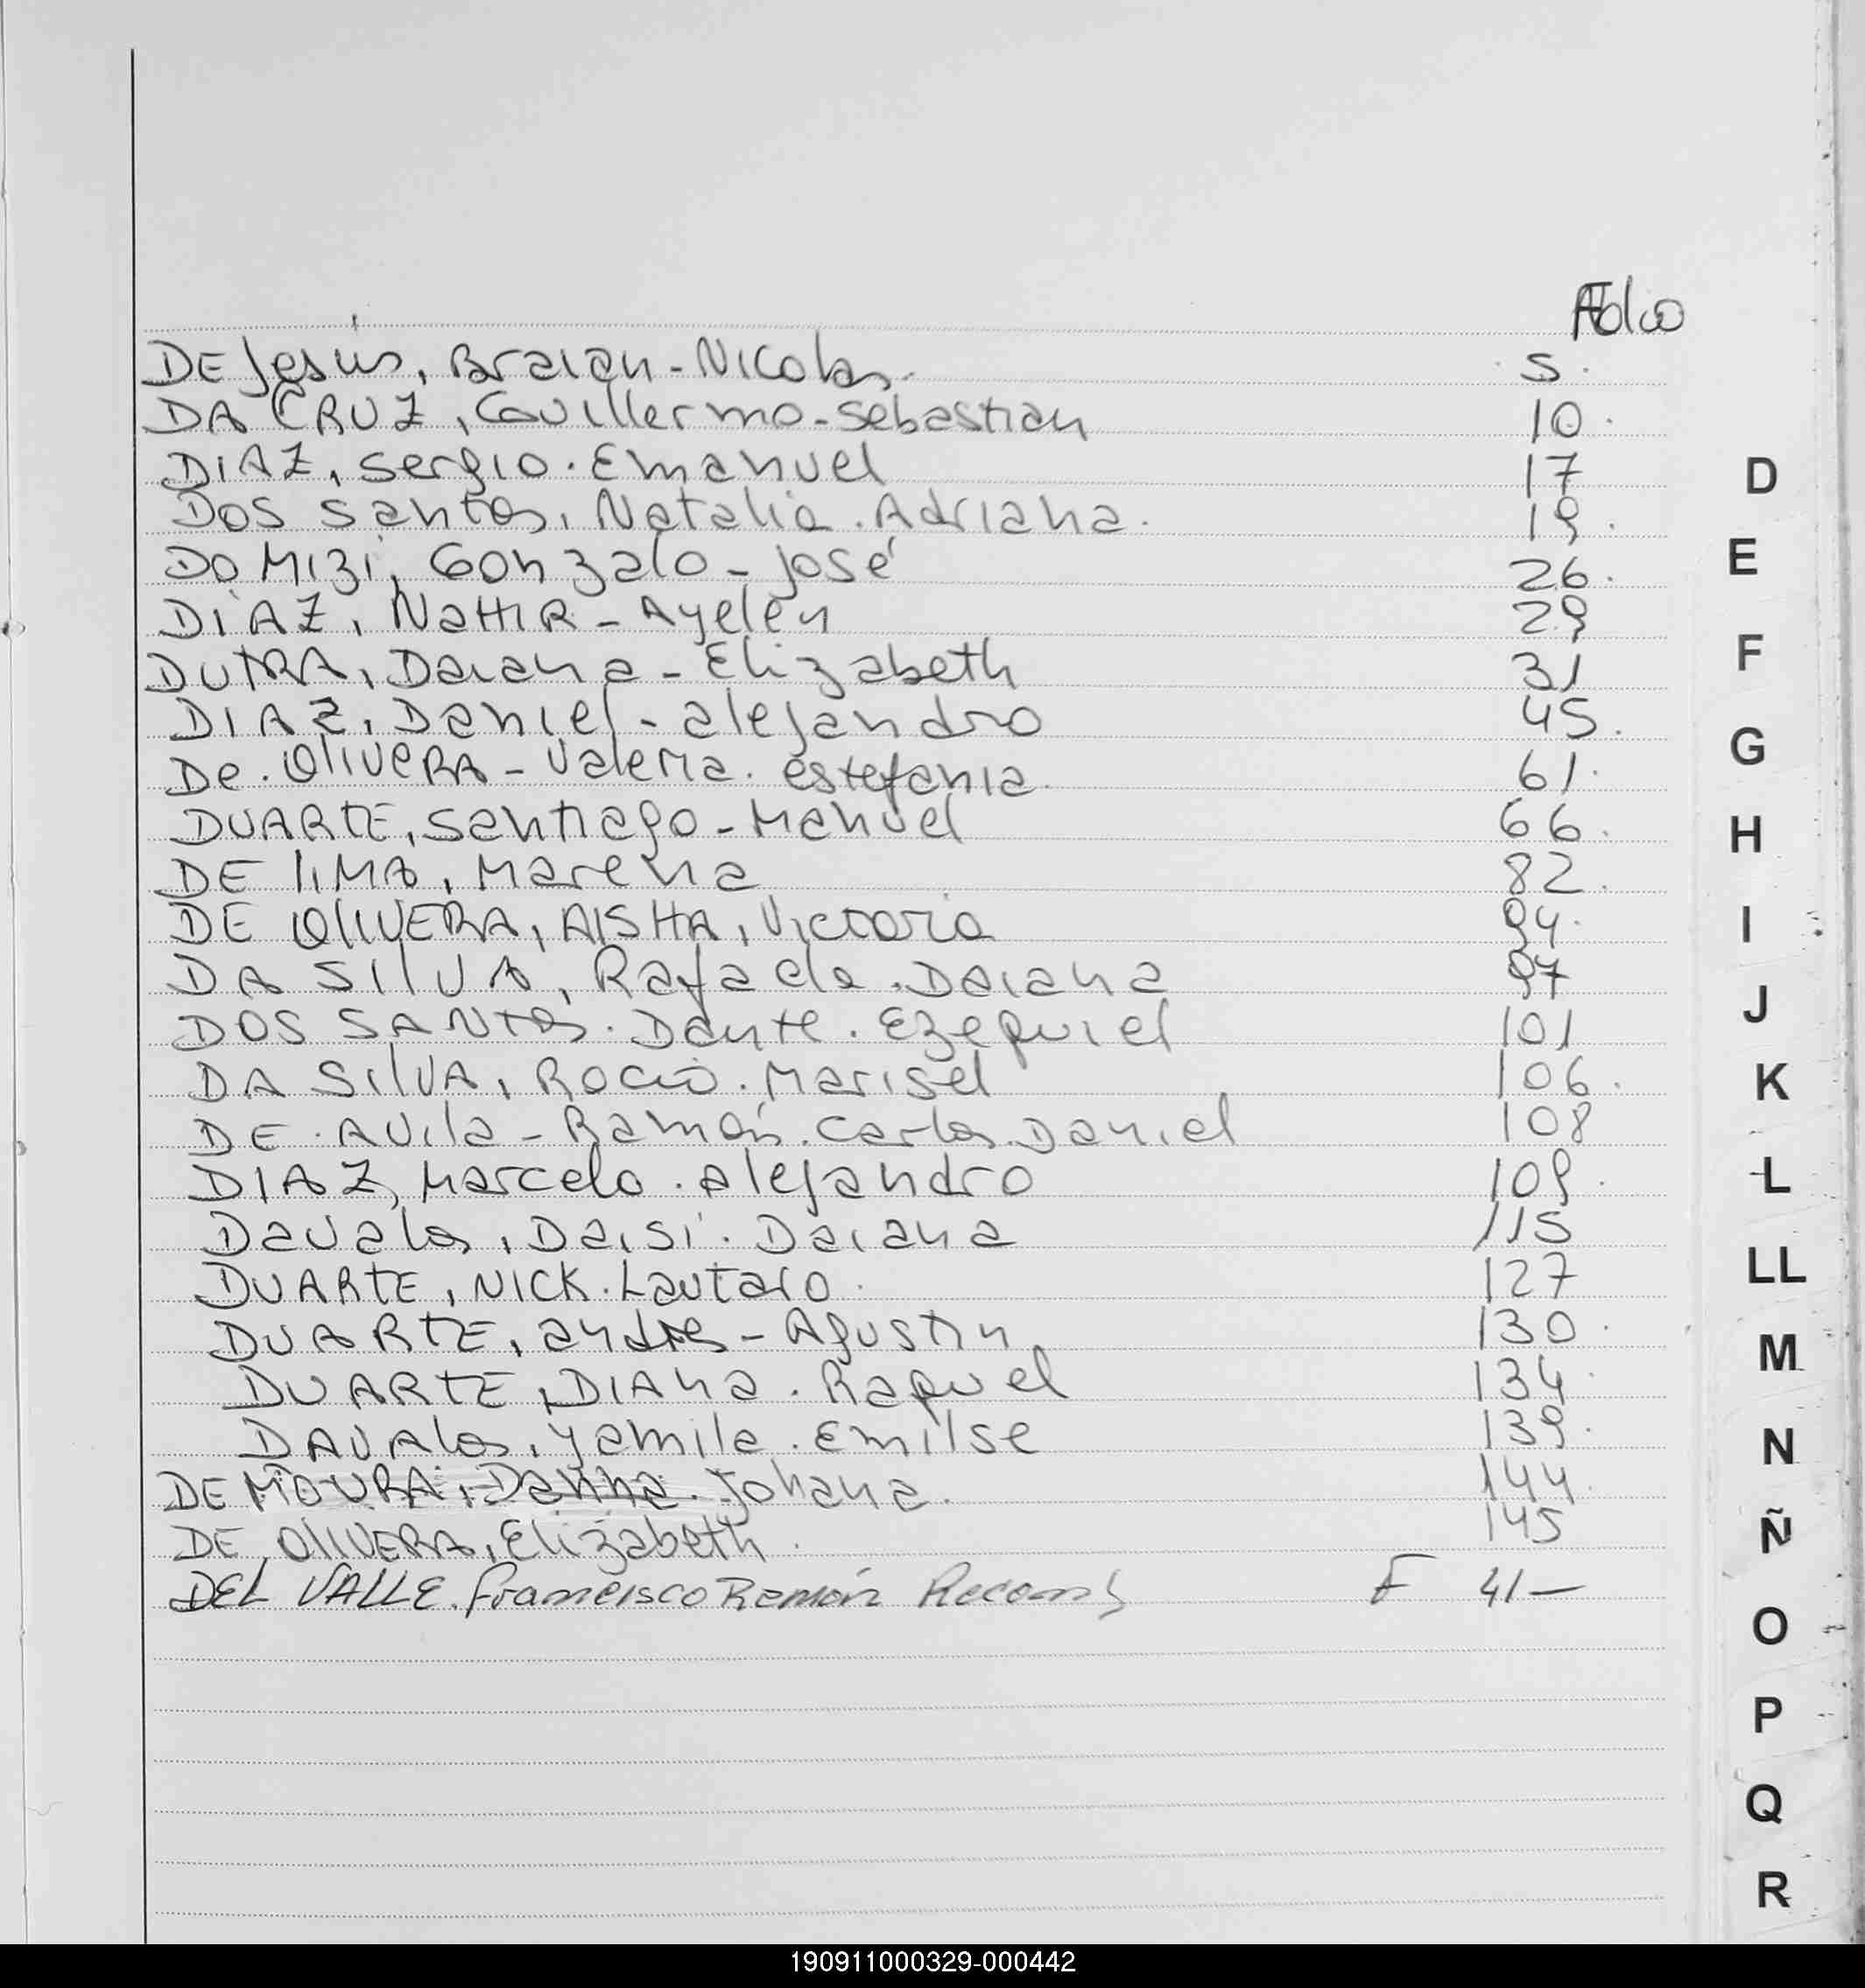 Folio
DE Jesús, Braian - Nicolas. 5.
DA CRUZ, Guillermo - Sebastian 10.
DIAZ, Sergio. Emanuel 17
DOS Santos, Natalia. Adriana. 19.
DO MIZI, Gonzalo - José 26.
DIAZ, NaHIR - Ayelén 29
DUTRA, Daiana - Elizabeth 31
DIAZ, Daniel - alejandro 45.
De. OliveRA - Valeria. estefania. 61.
DUARTE, Santiago - Manuel 66.
DE lIMA, Marena 82.
DE OlIVERA, AISHA, Victoria 94.
DA SIlVA, Rafaela. Daiana 97
DOS SANTOS. Dante. Ezequiel 101
DA SIlVA, Rocio. Marisel 106.
DE. AVila - Ramón. Carlos. Daniel 108
DIAZ, Marcelo. Alejandro 109.
Davalos, Daisi. Daiana 115
DUARTE, NICK. Lautaro. 127
DUARTE, andres - Agustin 130.
DUARTE, DIAna. Raquel 134.
DAVAlos, Yamila. Emilse 139.
DE MOURA, Danna. Johana. 144.
DE OlIVERA, Elizabeth. 145
DEL VALLE. Francisco Ramón F 41-
D
E
F
G
H
I
J
K
L
LL
M
N
Ñ
O
P
Q
R
190911000329-000442